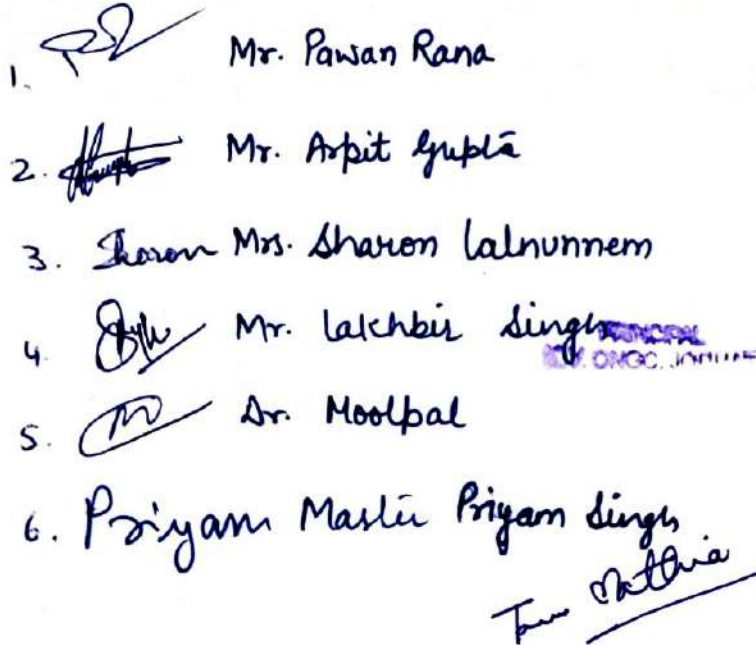 1. Mr. Pawan Rana
2. Mr. Arpit Gupta
3. Sharon Mrs. Sharon Lalnunnem
4. Mr. Lakhbir Singh
ONGC, 
5. Dr. Moolpal
6. Priyam Master Priyam Singh